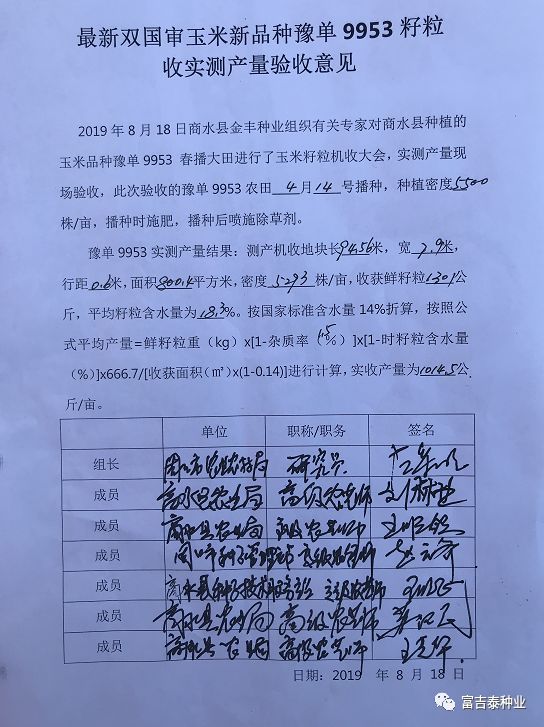 最新双国审玉米新品种豫单9953籽粒
收实测产量验收意见
2019年8月18日商水县金丰种业组织有关专家对商水县种植的
玉米品种豫单9953 春播大田进行了玉米籽粒机收大会，实测产量现
场验收，此次验收的豫单9953农田 4 月 14 号播种，种植密度5500
株/亩，播种时施肥，播种后喷施除草剂。
豫单9953实测产量结果：测产机收地块长94.56米，宽 7.9米，
行距 0.6米，面积800.4平方米，密度 5293 株/亩，收获鲜籽粒1301公
斤，平均籽粒含水量为 18.3%。按国家标准含水量14%折算，按照公
式平均产量=鲜籽粒重（kg）x[1-杂质率（1.5%）]x[1-时籽粒含水量
（%）]x666.7/[收获面积（㎡）x(1-0.14)]进行计算，实收产量为1014.5公
斤/亩。
单位 职称/职务 签名
组长 研究员
成员 商水县农业局 高级农艺师
成员 商水县农业局 高级农艺师
成员
成员
成员 商水县农业局 高级农艺师
成员 商水县农业局 高级农艺师
日期：2019 年 8 月 18 日
富吉泰种业